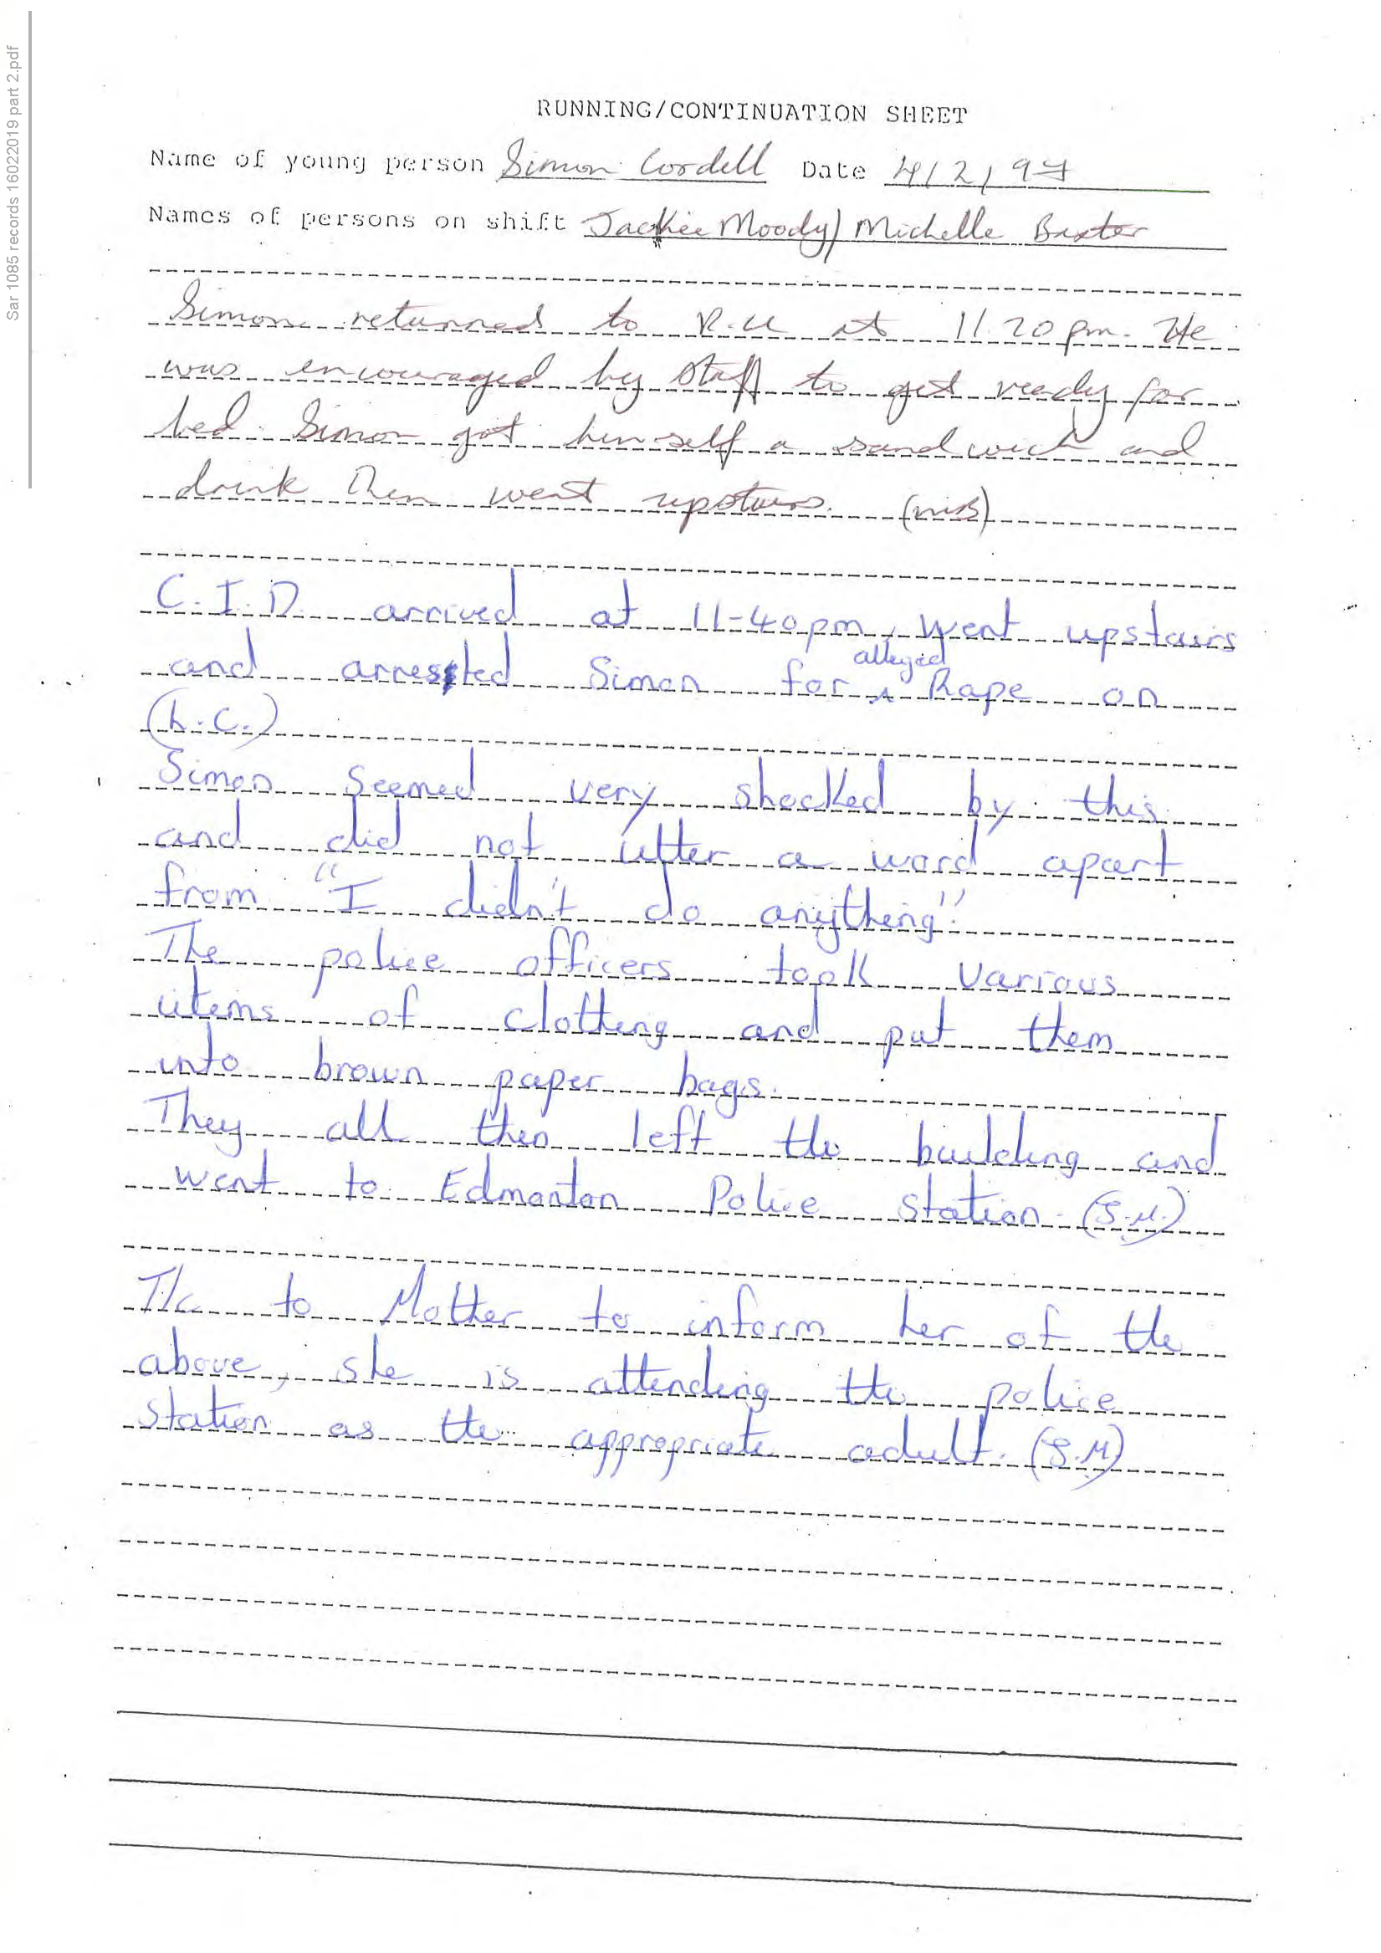 Sar 1085 records 16022019 part 2.pdf
RUNNING/CONTINUATION SHEET
Name of young person Simon Cordell Date 4/2/97
Names of persons on shift Jackie Moody/Michelle Baxter
Simon returned to R.U at 11.20pm. He
was encouraged by staff to get ready for
bed. Simon got himself a sandwich and
drink then went upstairs. (MB)
C.I.D. arrived at 11-40pm, went upstairs
and arrested Simon for alleged Rape on
(L.C.)
Simon seemed very shocked by this
and did not utter a word apart
from "I didn't do anything".
The police officers took various
items of clothing and put them
into brown paper bags.
They all then left the building and
went to Edmonton Police station. (J.M.)
T/c to Mother to inform her of the
above, she is attending the police
station as the appropriate adult. (J.M)